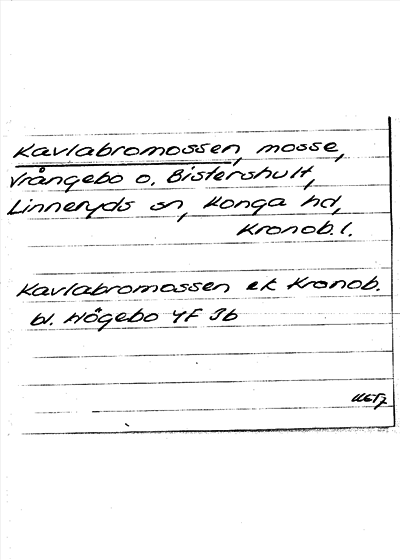 Kavlabromossen, mosse,
Vrångebo o. Bistershult,
Linneryds sn, Konga hd,
Kronob. l.
Kavlabromossen ek Kronob.
bl. Högebo 4F 3b